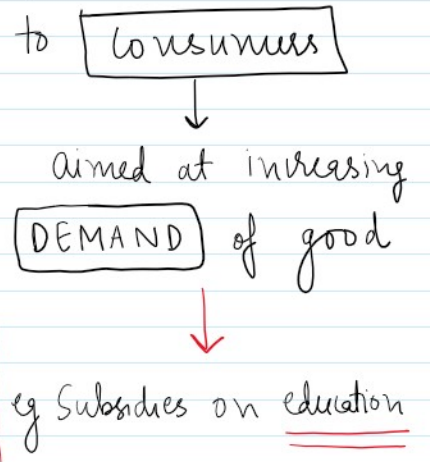 to Consumers
aimed at increasing
DEMAND of good
eg Subsidies on education